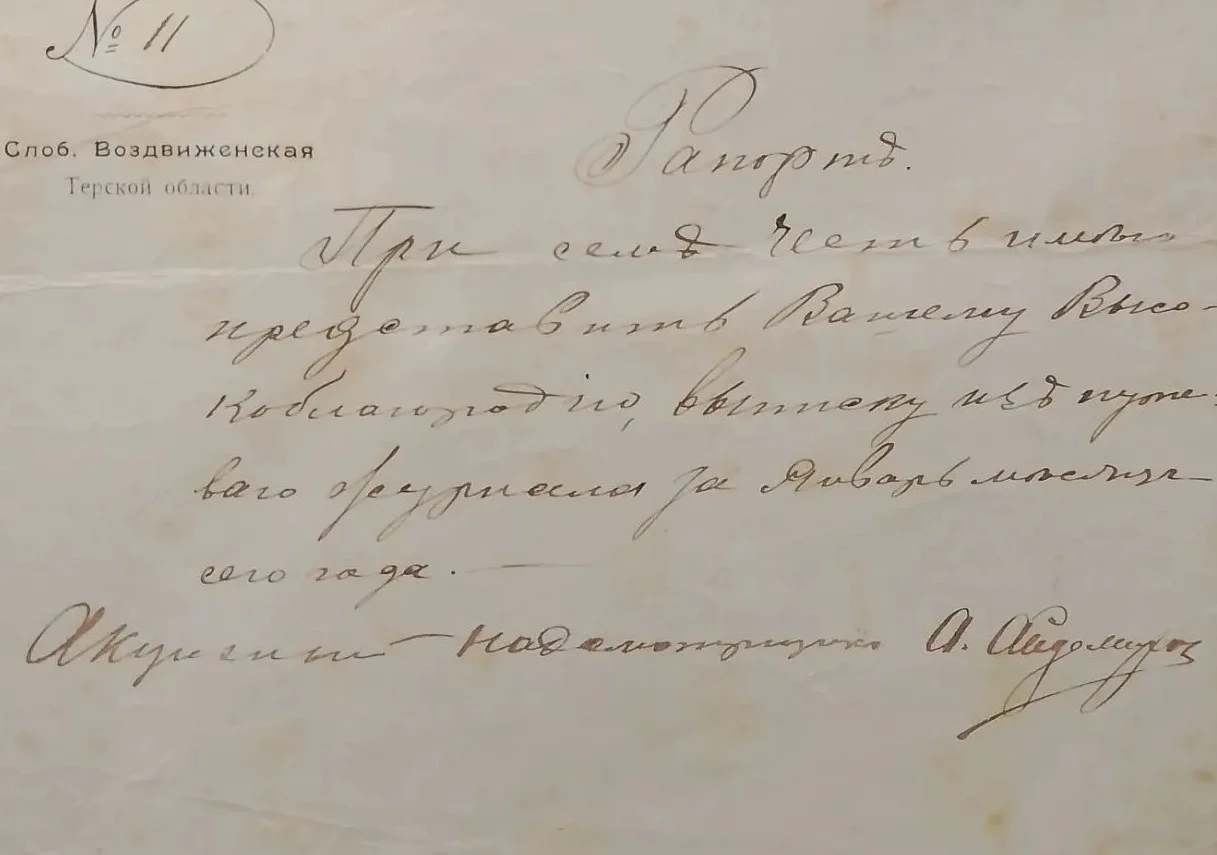 № 11
Слоб. Воздвиженская
Терской области.
Рапортъ.
При семъ честь имѣю
представить Вашему Высо-
коблагородію, выписку изъ путе-
ваго журнала за Январь мѣсяцъ
сего года.
Акцизный надсмотрщикъ А. Айдемиров